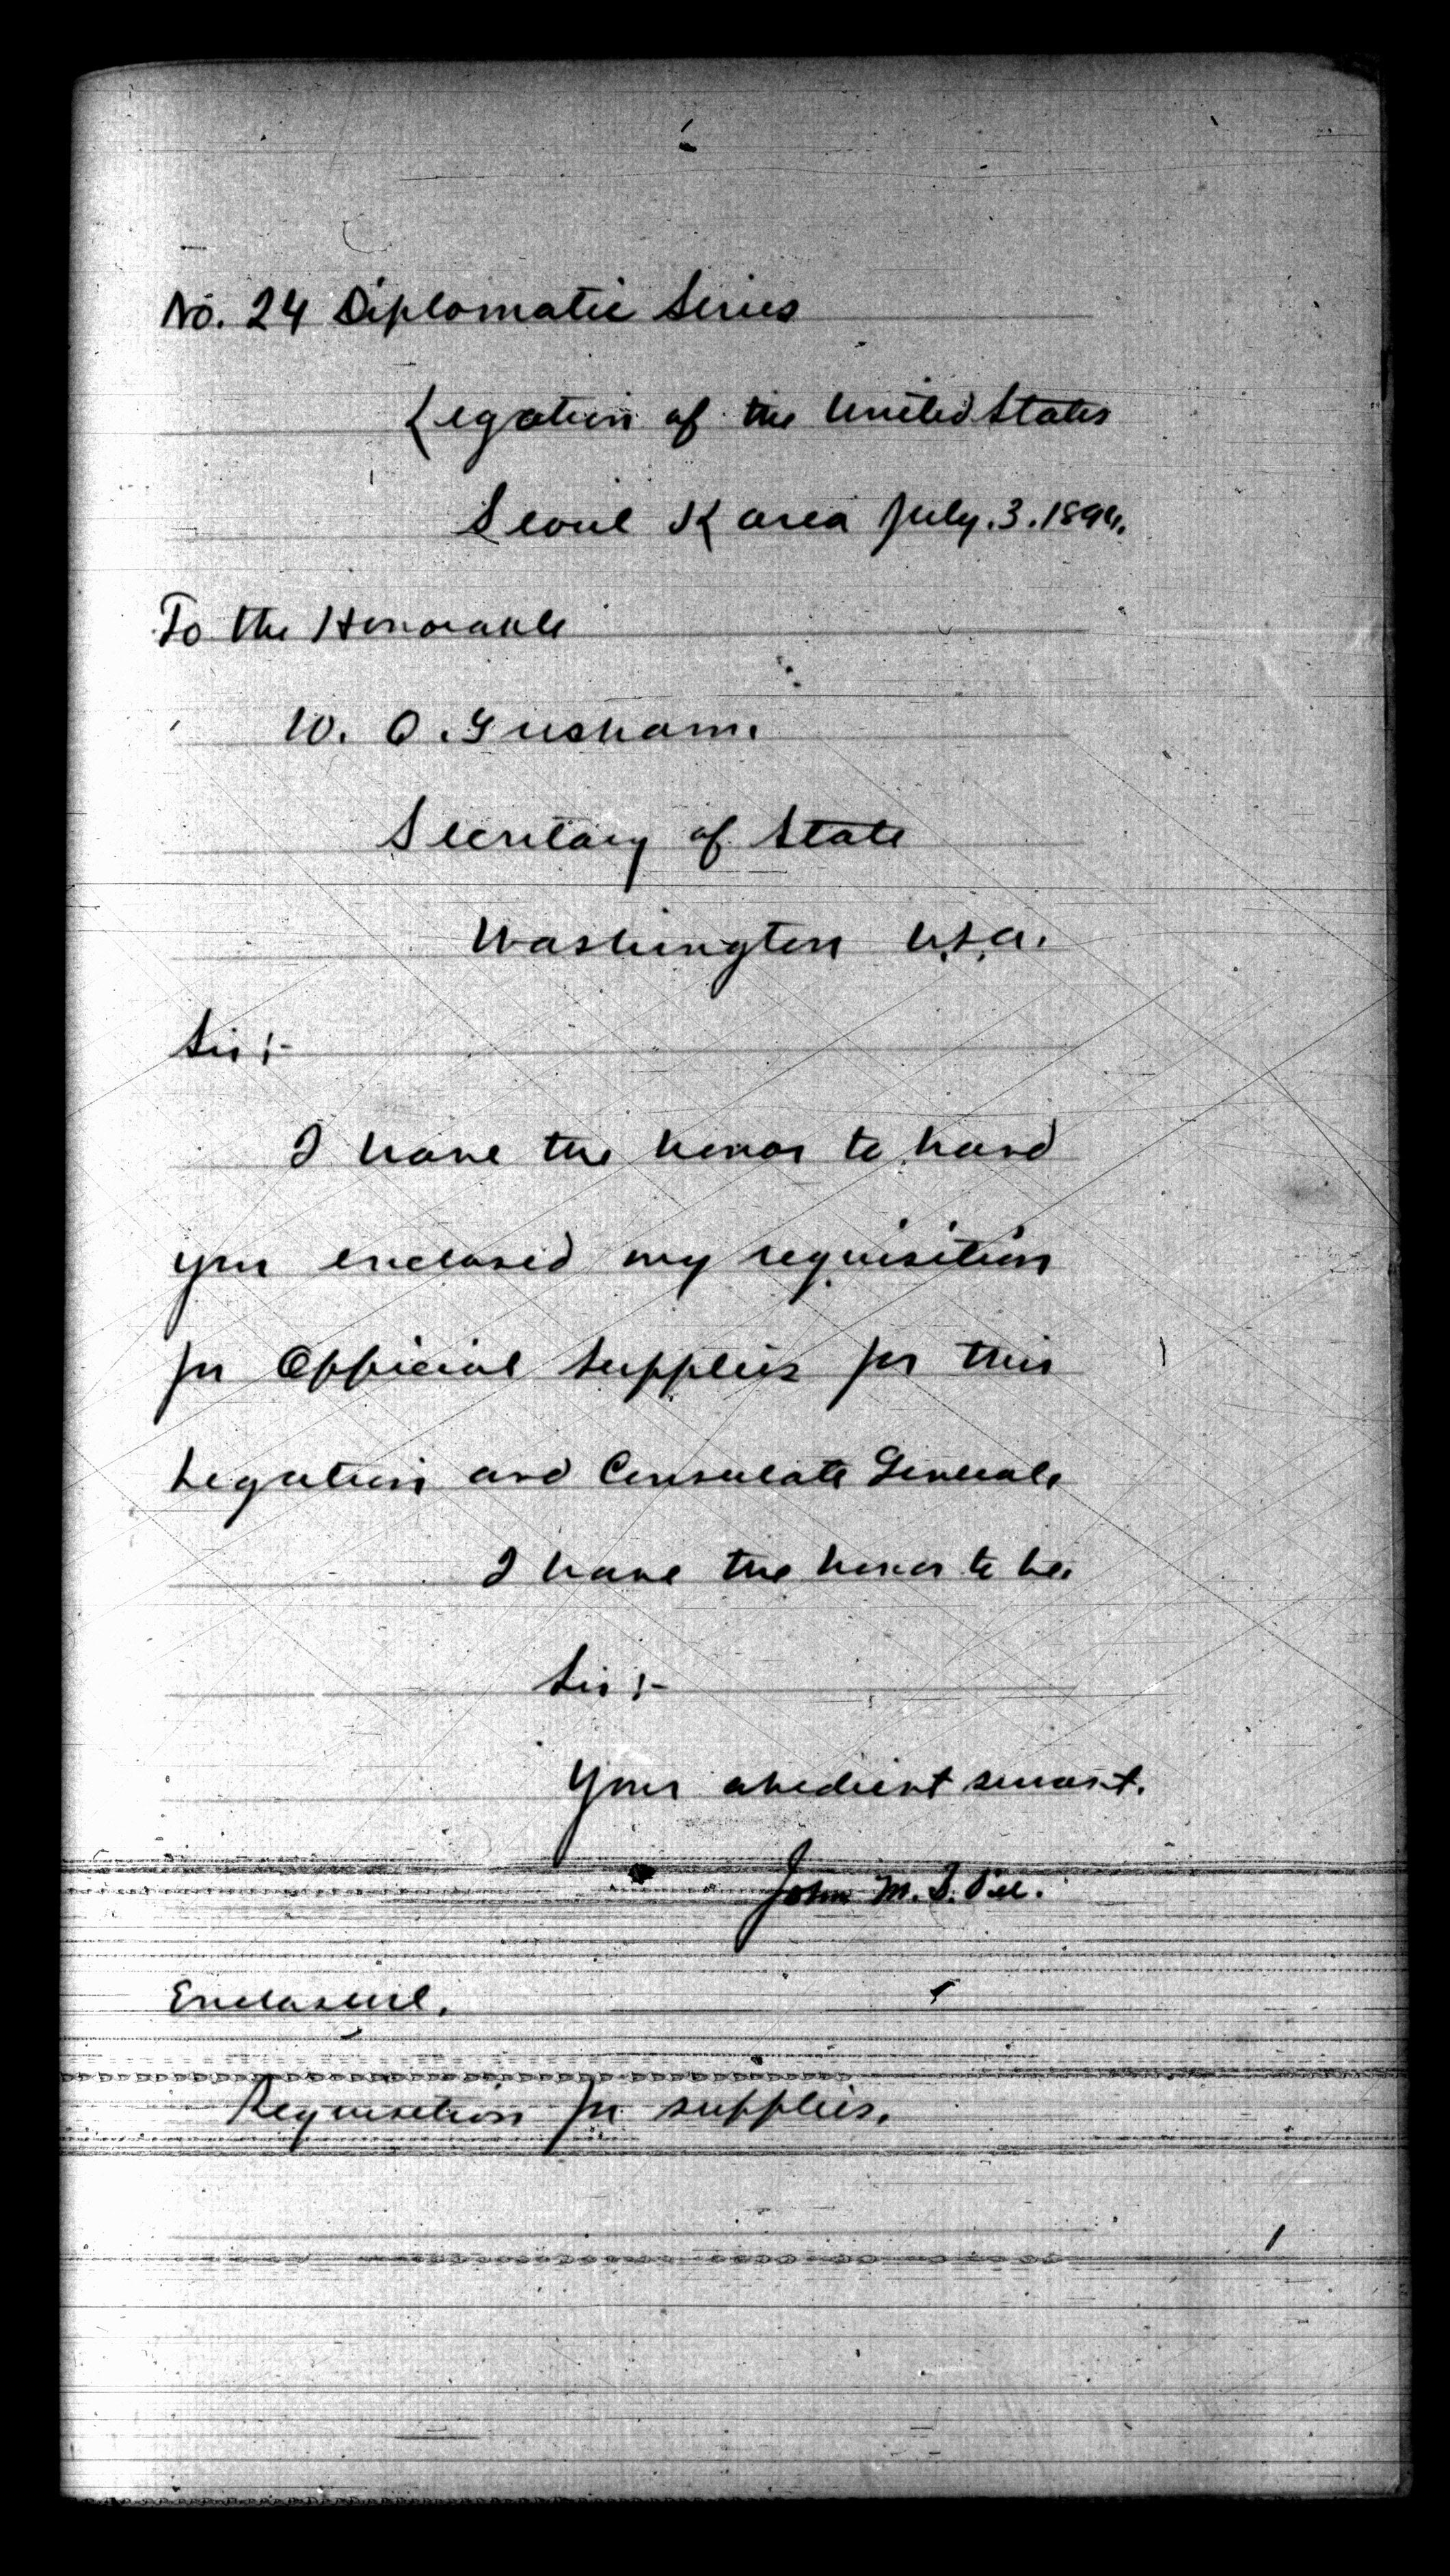 No. 24 Diplomatic Series
Legation of the United States
Seoul Korea July. 3. 1894.
To the Honorable
W. Q. Gresham.
Secretary of State
Washington U.S.A.
Sir :-
I have the honor to hand
you enclosed my requisition
for Official supplies for this
Legation and Consulate General.
I have the honor to be.
Sir :-
Your obedient servant.
John M. B. Sill.
Enclosure.
Requisition for supplies.